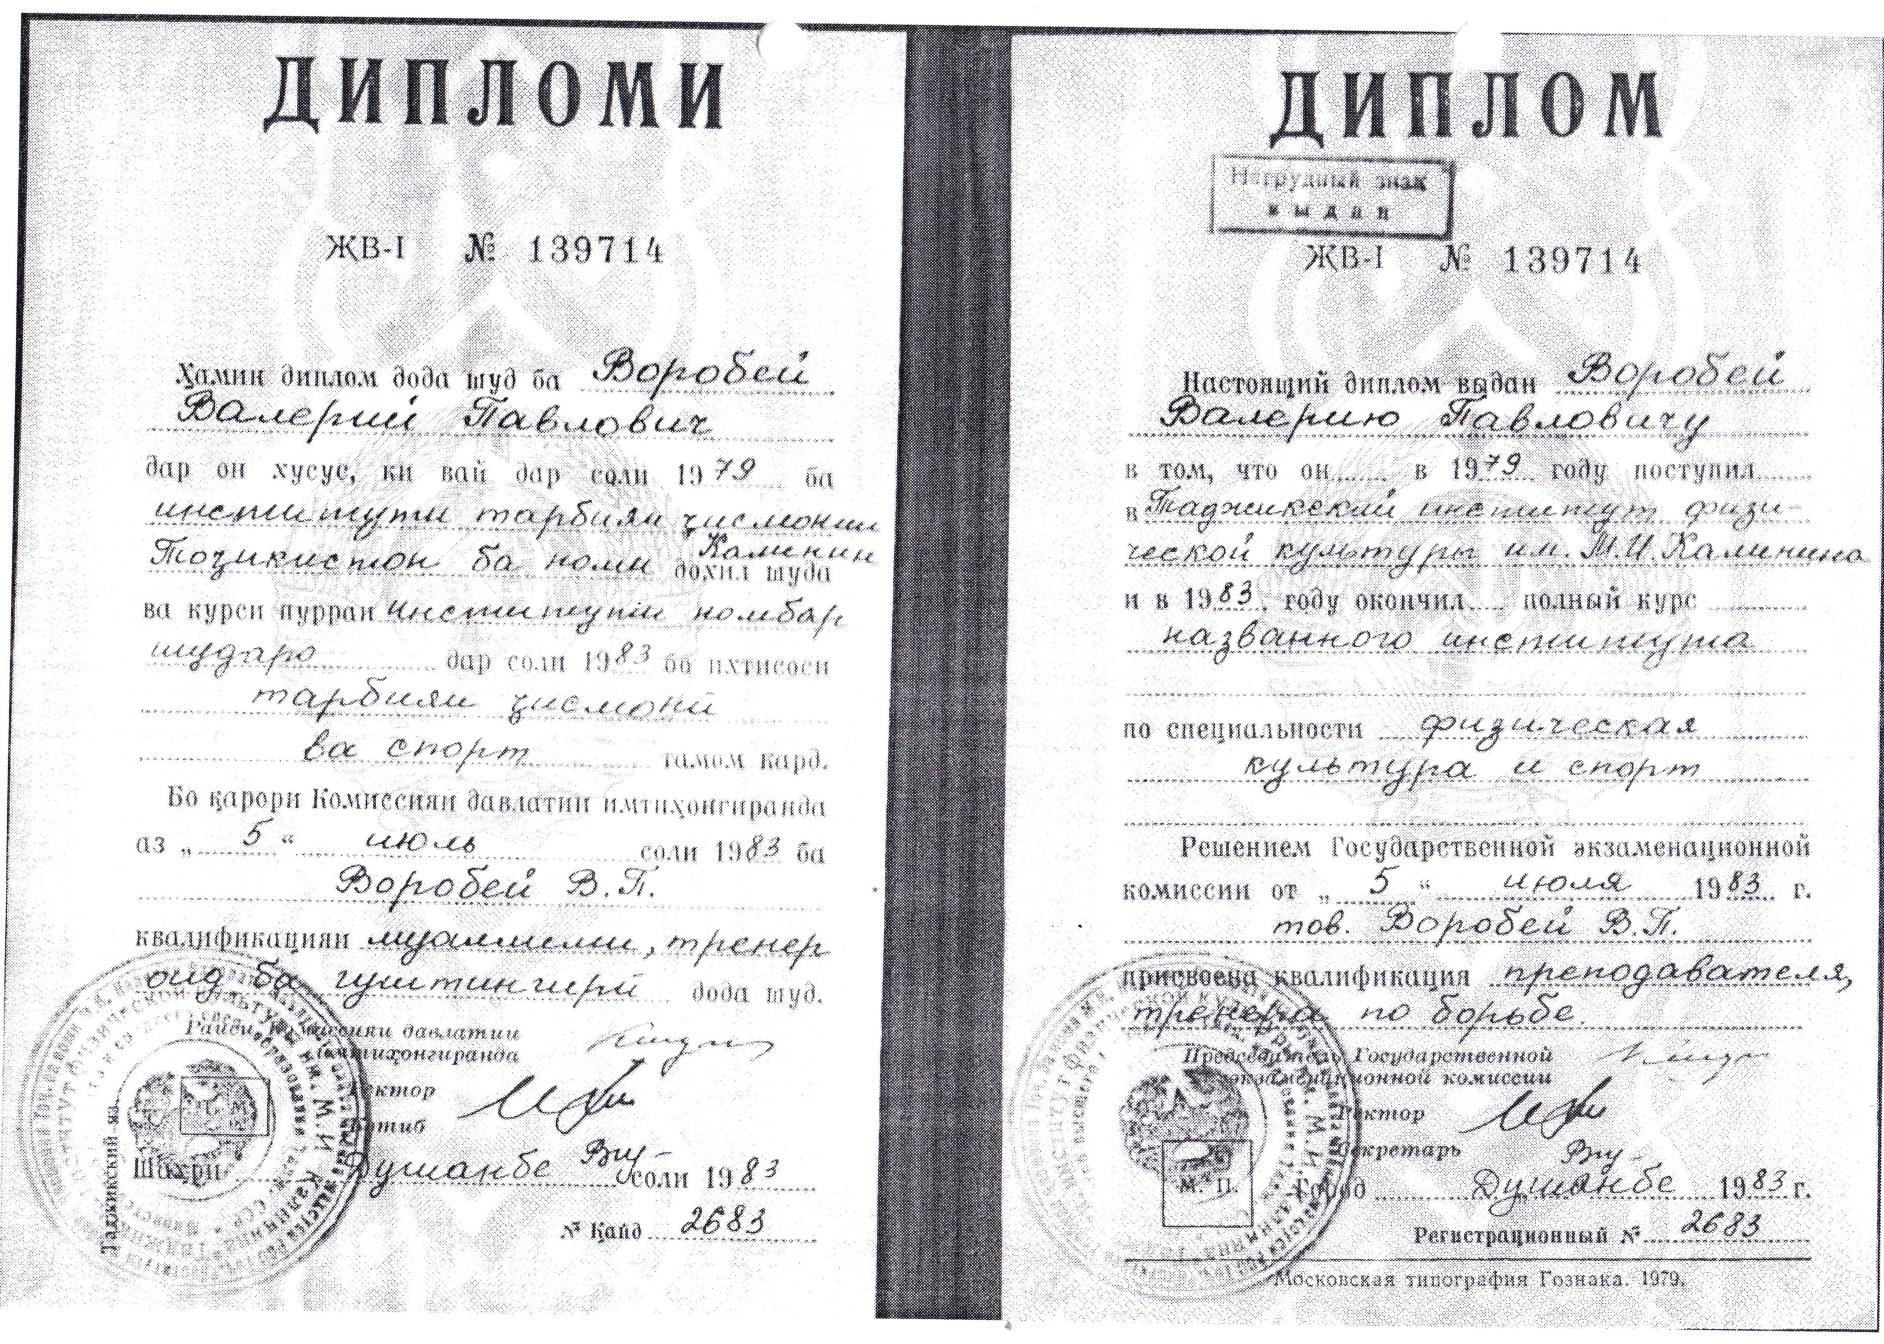 ДИПЛОМИ
ЖВ-I № 139714
Ҳамин диплом дода шуд ба Воробей
Валерий Павлович
дар он хусус, ки вай дар соли 1979 ба
институти тарбияи ҷисмонии
Тоҷикистон ба номи Калинин
дохил шуда
ва курси пурраи институти номбар
шударо дар соли 1983 бо ихтисоси
тарбияи ҷисмонӣ
ва спорт тамом кард.
Бо қарори Комиссияи давлатии имтиҳонгиранда
аз „ 5 “ июль соли 1983 ба
Воробей В.П.
квалификацияи муаллими, тренер
оид ба гуштингирӣ дода шуд.
Раиси Комиссияи давлатии
имтиҳонгиранда
Ректор
Котиб
Шаҳри Душанбе соли 1983
№ Қайд 2683
Таджикский яз.
ДИПЛОМ
Нагрудный знак
выдан
ЖВ-I № 139714
Настоящий диплом выдан Воробей
Валерию Павловичу
в том, что он в 1979 году поступил
в Таджикский институт физи-
ческой культуры им. М.И. Калинина
и в 1983 году окончил полный курс
названного института
по специальности физическая
культура и спорт
Решением Государственной экзаменационной
комиссии от „ 5 “ июля 1983 г.
тов. Воробей В.П.
присвоена квалификация преподавателя,
тренера по борьбе.
Председатель Государственной
экзаменационной комиссии
Ректор
Секретарь
М. П.
Город Душанбе 1983 г.
Регистрационный № 2683
Московская типография Гознака. 1979.